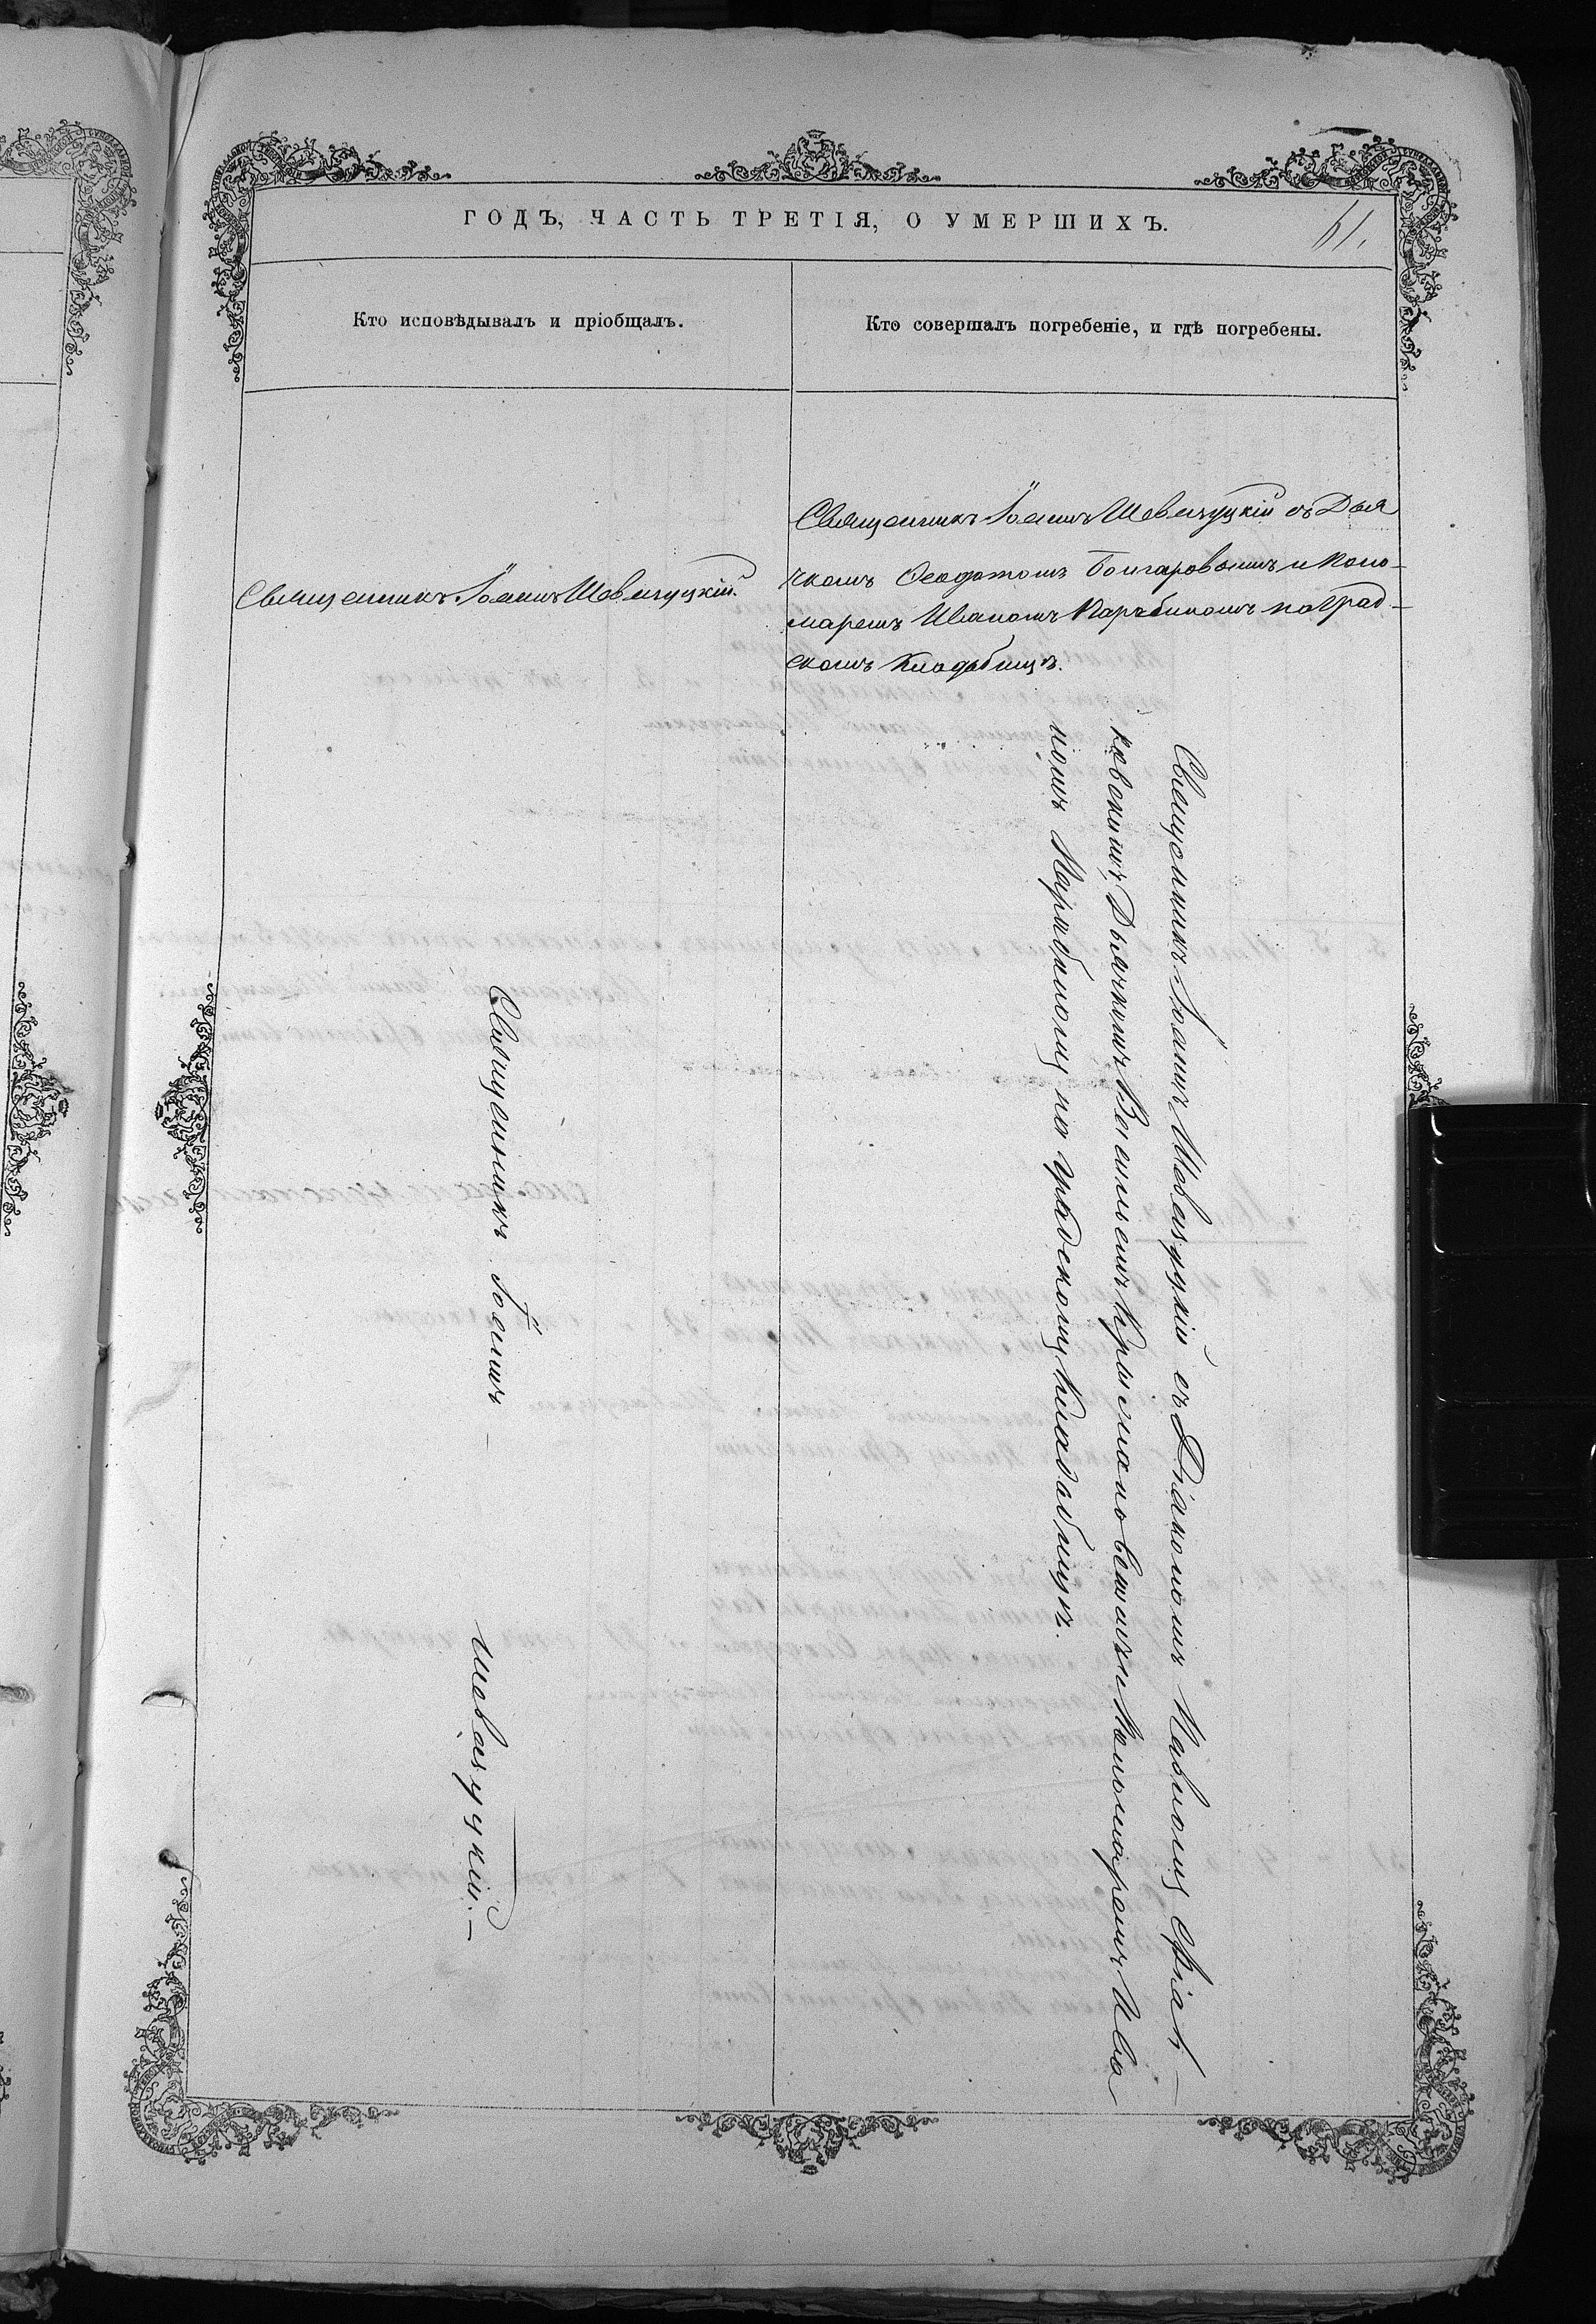 ГОДЪ, ЧАСТЬ ТРЕТІЯ, О УМЕРШИХЪ.
61.
Кто исповѣдывалъ и пріобщалъ.
Кто совершалъ погребеніе, и гдѣ погребены.
Священникъ Іоаннъ Шевазуцкій.
Священникъ Іоаннъ Шевазуцкій съ Дья
чкомъ Ѳеодотомъ Болгаровымъ и Поно-
маремъ Иваномъ на Град-
скомъ Кладбищѣ.
Священникъ Іоаннъ
Шевазуцкій.
Священникъ Іоаннъ Шевазуцкій съ Діакономъ Павломъ
Дьячкомъ Васильемъ и Пономаремъ Ива
номъ на градскомъ Кладбищѣ.